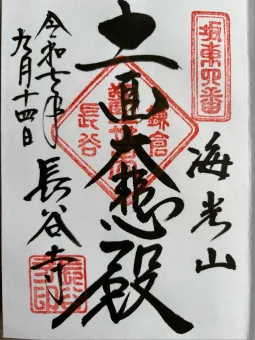 坂東四番
海光山
十一面大悲殿
鎌倉
長谷
令和七年
九月十四日
長谷寺